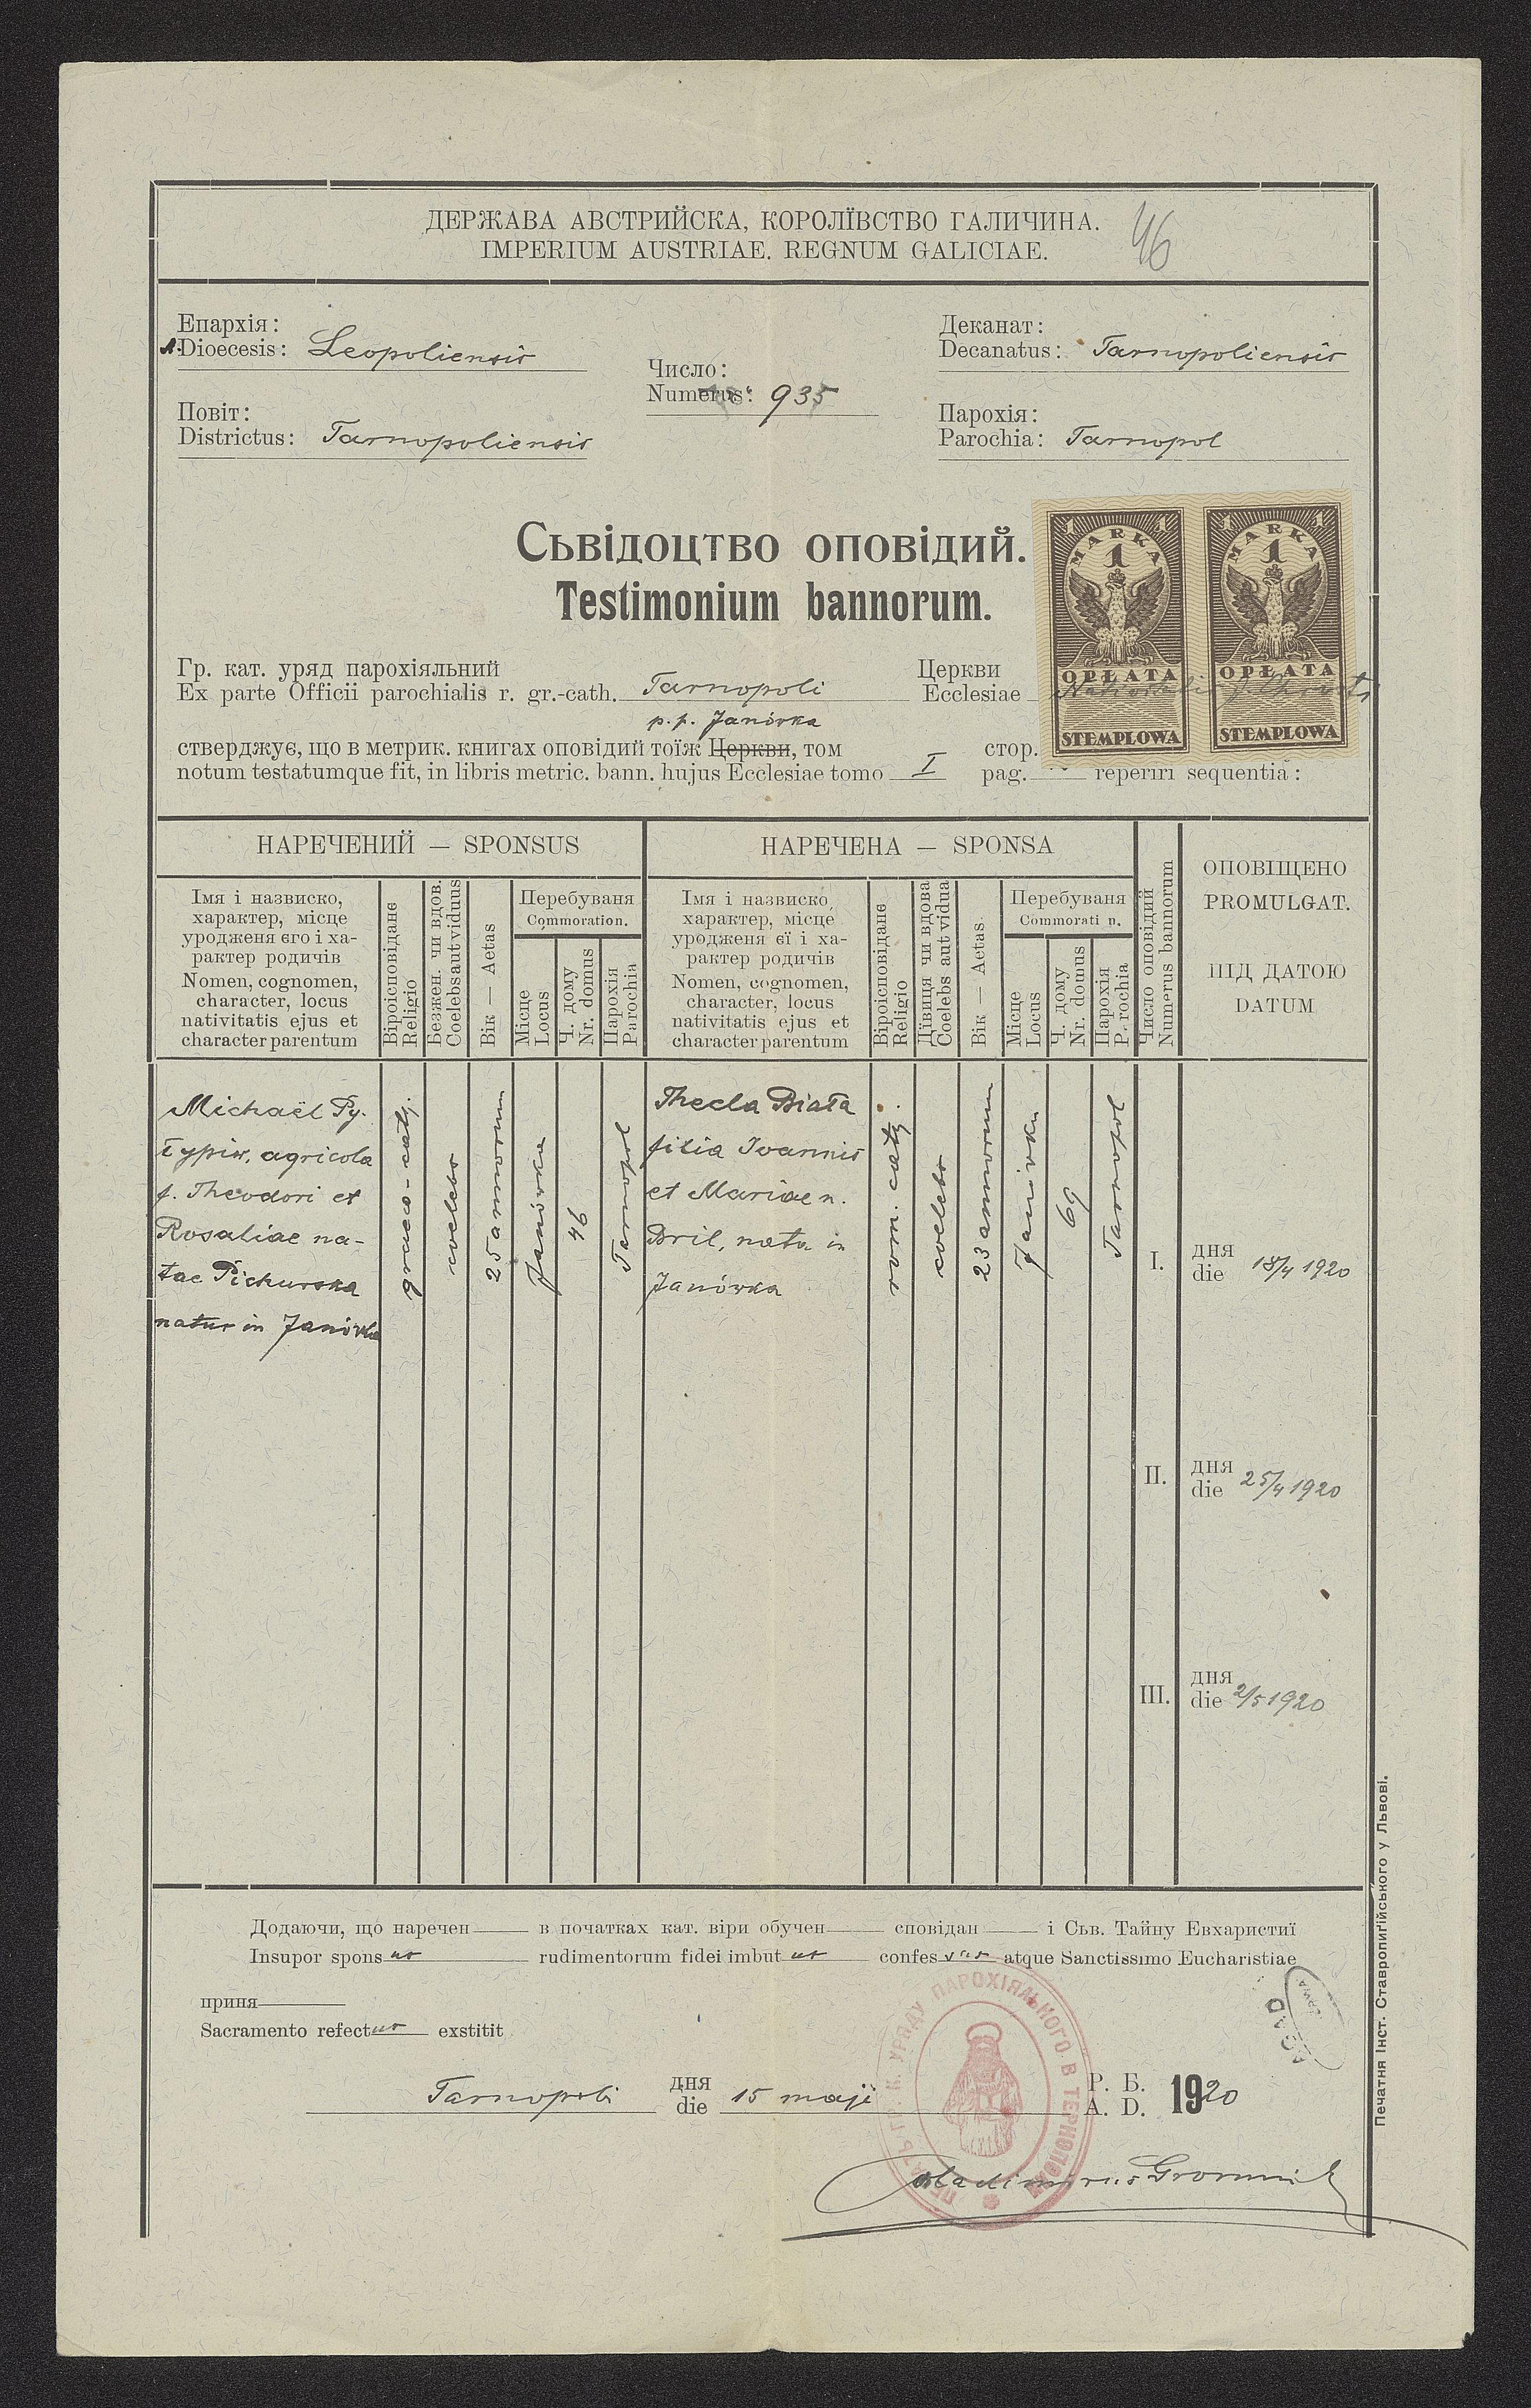 ДЕРЖАВА АВСТРИЙСКА, КОРОЛЇВСТВО ГАЛИЧИНА.
IMPERIUM AUSTRIAE. REGNUM GALICIAE.
46
Епархія:
A.Dioecesis: Leopoliensis
Число:
Numerus: 935
Деканат:
Decanatus: Tarnopoliensis
Повіт:
Districtus: Tarnopoliensis
Парохія:
Parochia: Tarnopol
Сьвідоцтво оповідий.
Testimonium bannorum.
1 MARKA 1
1
OPŁATA
STEMPLOWA
1 MARKA 1
1
OPŁATA
STEMPLOWA
Гр. кат. уряд парохіяльний Церкви
Ex parte Officii parochialis r. gr.-cath. Tarnopoli Ecclesiae
p.p. Janówka
стверджує, що в метрик. книгах оповідий тоїж Церкви, том стор.
notum testatumque fit, in libris metric. bann. hujus Ecclesiae tomo I pag. reperiri sequentia:
НАРЕЧЕНИЙ — SPONSUS
НАРЕЧЕНА — SPONSA
Імя і назвиско,
характер, місце
уродженя єго і ха-
рактер родичів
Nomen, cognomen,
character, locus
nativitatis ejus et
character parentum
Віроісповіданє
Religio
Безжен. чи вдов.
Coelebs aut viduus
Вік — Aetas
Перебуваня
Commoration.
Місце
Locus
Ч. дому
Nr. domus
Парохія
Parochia
Імя і назвиско,
характер, місце
уродженя єї і ха-
рактер родичів
Nomen, cognomen,
character, locus
nativitatis ejus et
character parentum
Віроісповіданє
Religio
Дївиця чи вдова
Coelebs aut vidua
Вік — Aetas.
Перебуваня
Commorati n.
Місце
Locus
Ч. дому
Nr. domus
Парохія
Parochia
Число оповідий
Numerus bannorum
ОПОВІЩЕНО
PROMULGAT.
ПІД ДАТОЮ
DATUM
Michaël Py-
typiw, agricola
f. Theodori et
Rosaliae na-
tae Pichurska
natus in Janówka
graeco-cath.
coelebs
25 annorum
Janówka
46
Tarnopol
Thecla Biała
filia Ioannis
et Mariae n.
Bril, nata in
Janówka
rom. cath.
coelebs
23 annorum
Janówka
69
Tarnopol
I. дня
die 18/4 1920
II. дня
die 25/4 1920
III. дня
die 2/5 1920
Додаючи, що наречен в початках кат. віри обучен сповідан і Сьв. Тайну Евхаристиї
Insupor spons us rudimentorum fidei imbut us confes sus atque Sanctissimo Eucharistiae
приня
Sacramento refect us exstitit
Tarnopoli дня
die 15 maji Р. Б.
A. D. 1920
ПЕЧАТЬ ГР. К. УРЯДУ ПАРОХІЯЛЬНОГО В ТЕРНОПОЛИ
AGAD
Vladimirus Gromnicki
Печатня Інст. Ставропигійського у Львові.